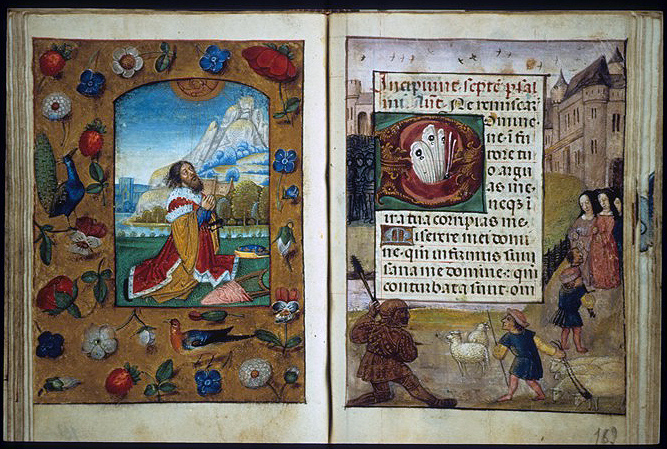 Incipiunt septe psal
mi. Ant. Ne reminscar
Domine
ne i fu
rore tu
o argu
as me.
neqz i
ira tua corripias me.
Miserere mei domi
ne. qm infirmus sum
sana me domine: qm
conturbata sunt om
169